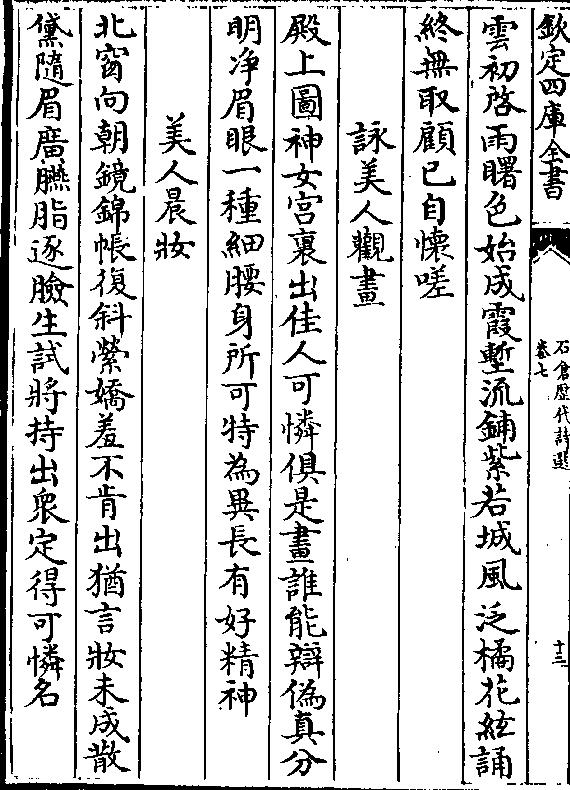 欽定四庫全書
石倉歷代詩選
卷七
十三
雲初啓雨曙色始成霞塹流鋪紫若城風泛橘花絃誦
終無取顧已自懷嗟
詠美人觀畫
殿上圖神女宮裏出佳人可憐俱是畫誰能辯偽真分
明净眉眼一種細腰身所可特為異長有好精神
美人晨妝
北窗向朝鏡錦帳復斜縈嬌羞不肯出猶言妝未成散
黛隨眉廣臙脂逐臉生試將持出衆定得可憐名